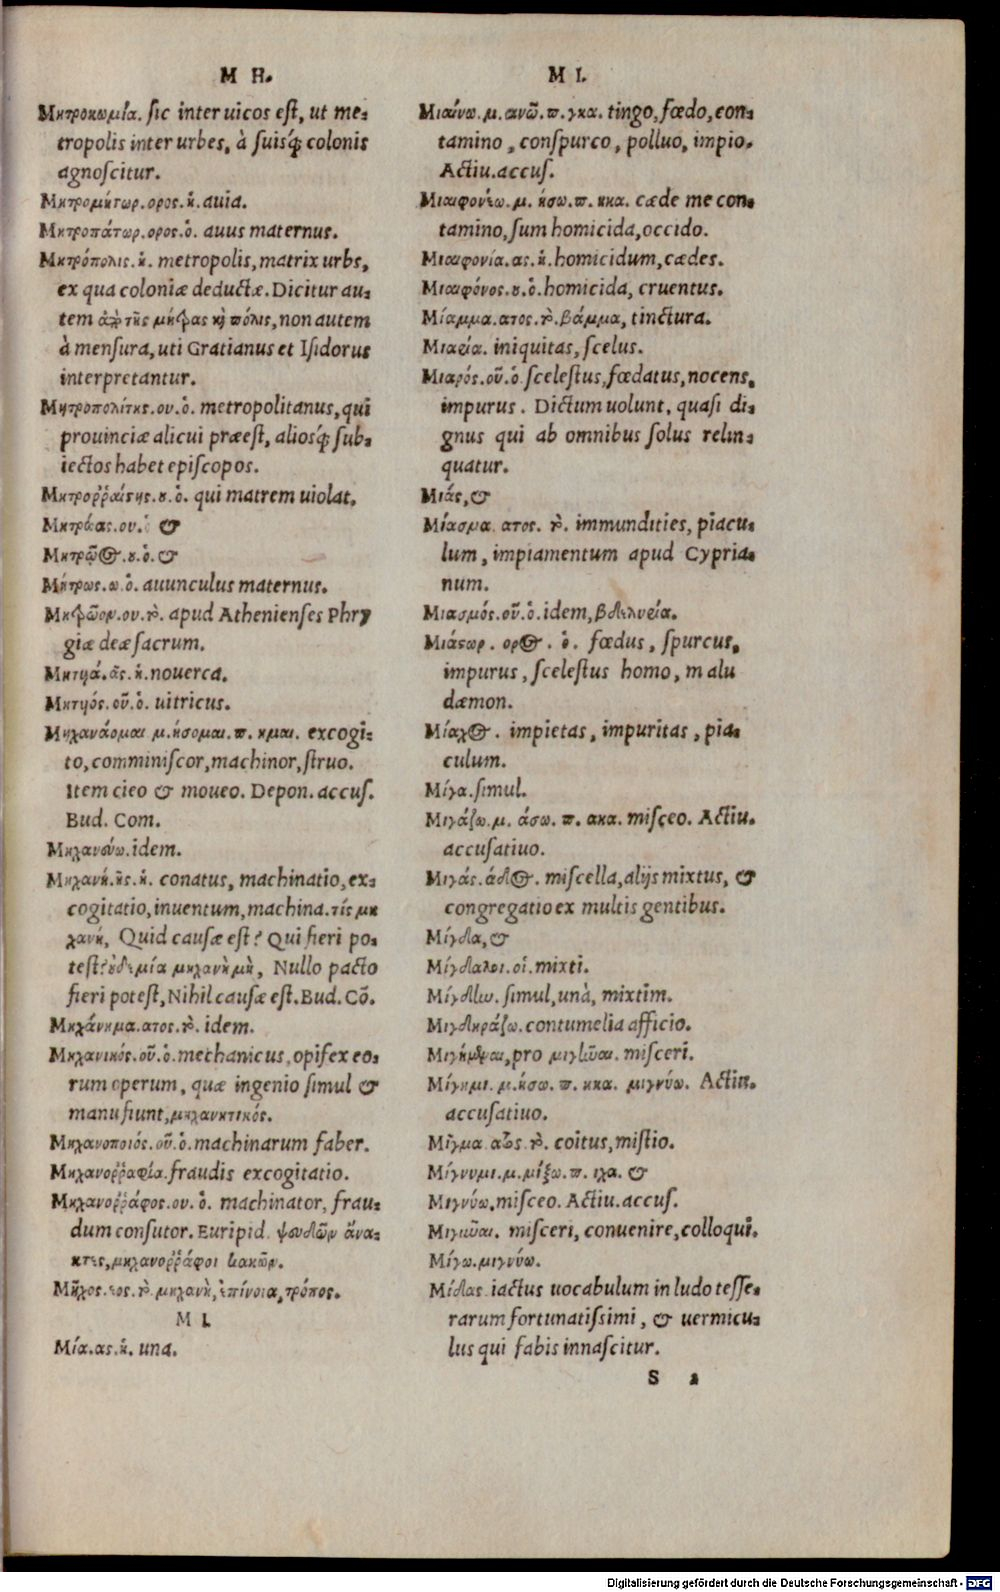 M H.
Μητροκωμία. sic inter uicos est, ut me-
tropolis inter urbes, à suisq́; colonis
agnoscitur.
Μητρομήτωρ.ορος.ἡ.auia.
Μητροπάτωρ.ορος.ὁ. auus maternus.
Μητρόπολις.ἡ. metropolis, matrix urbs,
ex qua coloniæ deductæ. Dicitur au-
tem ἀπὸ τῆς μήτρας καὶ πόλις, non autem
à mensura, uti Gratianus et Isidorus
interpretantur.
Μητροπολίτης.ου.ὁ. metropolitanus, qui
prouinciæ alicui præest, aliosq́; sub-
iectos habet episcopos.
Μητροῤῥαίστης.ου.ὁ. qui matrem uiolat.
Μητρώας.ου.ὁ &
Μητρῷος.ου.ὁ.&
Μήτρως.ω.ὁ. auunculus maternus.
Μητρῶον.ου.τὸ. apud Athenienses Phry
giæ deæ sacrum.
Μητυιά.ᾶς.ἡ.nouerca.
Μητυιός.οῦ.ὁ. uitricus.
Μηχανάομαι μ.ήσομαι.π. ημαι. excogi-
to, comminiscor, machinor, struo.
Item cieo & moueo. Depon. accus.
Bud. Com.
Μηχανεύω.idem.
Μηχανή.ῆς.ἡ. conatus, machinatio, ex-
cogitatio, inuentum, machina. τίς μη
χανή, Quid causæ est? Qui fieri po-
test? οὐδεμία μηχανὴ μὴ, Nullo pacto
fieri potest, Nihil causæ est. Bud. Cō.
Μηχάνημα.ατος.τὸ. idem.
Μηχανικός.οῦ.ὁ. mechanicus, opifex eo-
rum operum, quæ ingenio simul &
manu fiunt, μηχανητικός.
Μηχανοποιός.οῦ.ὁ. machinarum faber.
Μηχανοῤῥαφία. fraudis excogitatio.
Μηχανοῤῥάφος.ου.ὁ. machinator, frau-
dum consutor. Euripid. ψευδῶν ἄνα-
κτες, μηχανοῤῥάφοι κακῶν.
Μῆχος.εος.τὸ μηχανὴ, ἐπίνοια, τρόπος.
M I.
Μία.ας.ἡ. una.
M I.
Μιαίνω.μ.ανῶ.π.γκα. tingo, fœdo, con-
tamino, conspurco, polluo, impio.
Actiu. accus.
Μιαιφονέω.μ. ήσω.π. ηκα. cæde me con-
tamino, sum homicida, occido.
Μιαιφονία.ας.ἡ. homicidum, cædes.
Μιαιφόνος.ου.ὁ. homicida, cruentus.
Μίαμμα.ατος.τὸ.βάμμα, tinctura.
Μιαρία. iniquitas, scelus.
Μιαρός.οῦ.ὁ scelestus, fœdatus, nocens,
impurus. Dictum uolunt, quasi di-
gnus qui ab omnibus solus relin-
quatur.
Μιάς, &
Μίασμα ατος. τὸ. immundities, piacu-
lum, impiamentum apud Cypria-
num.
Μιασμός.οῦ.ὁ.idem, βδελυρία.
Μιάστωρ. ορος. ὁ. fœdus, spurcus,
impurus, scelestus homo, malu
dæmon.
Μίαχος. impietas, impuritas, pia-
culum.
Μίγα. simul.
Μιγάζω.μ. άσω. π. ακα. misceo. Actiu.
accusatiuo.
Μιγάς.άδος. miscella, alijs mixtus, &
congregatio ex multis gentibus.
Μίγδα, &
Μίγδαλοι.οἱ. mixti.
Μίγδην. simul, unà, mixtim.
Μιγδηράζω. contumelia afficio.
Μιγήμεναι, pro μιγῆναι. misceri.
Μίγημι.μ.ήσω.π. ηκα. μιγνύω. Actiu.
accusatiuo.
Μίγμα ατος. τὸ. coitus, mistio.
Μίγνυμι.μ.μίξω.π. ιχα. &
Μιγνύω. misceo. Actiu. accus.
Μιγῆναι. misceri, conuenire, colloqui.
Μίγω.μιγνύω.
Μίδας. iactus uocabulum in ludo tesse-
rarum fortunatissimi, & uermicu-
lus qui fabis innascitur.
S 2
Digitalisierung gefördert durch die Deutsche Forschungsgemeinschaft - DFG